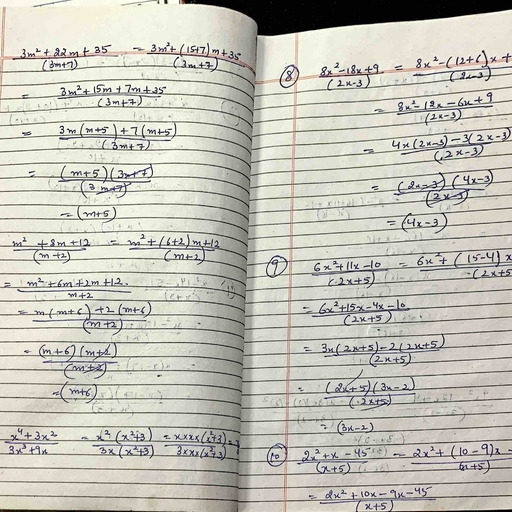 3m² + 22m + 35 / (3m+7) = 3m² + (15+7)m + 35 / (3m+7)
= 3m² + 15m + 7m + 35 / (3m+7)
= 3m(m+5) + 7(m+5) / (3m+7)
= (m+5)(3m+7) / (3m+7)
= (m+5)
m² + 8m + 12 / (m+2) = m² + (6+2)m + 12 / (m+2)
= m² + 6m + 2m + 12. / m+2
= m(m+6) + 2(m+6) / (m+2)
= (m+6)(m+2) / (m+2)
= (m+6)
x⁴ + 3x² / 3x³ + 9x = x²(x²+3) / 3x(x²+3) = x×x×(x²+3) / 3×x×(x²+3) =
⑧ 8x² - 18x + 9 / (2x-3) = 8x² - (12+6)x + / (2x-3)
= 8x² - 12x - 6x + 9 / (2x-3)
= 4x(2x-3) - 3(2x-3) / (2x-3)
= (2x-3)(4x-3) / (2x-3)
= (4x-3)
⑨ 6x² + 11x - 10 / (2x+5) = 6x² + (15-4)x / (2x+5
= 6x² + 15x - 4x - 10 / (2x+5)
= 3x(2x+5) - 2(2x+5) / (2x+5)
= (2x+5)(3x-2) / (2x+5)
= (3x-2)
⑩ 2x² + x - 45 / (x+5) = 2x² + (10-9)x - / (x+5)
= 2x² + 10x - 9x - 45 / (x+5)